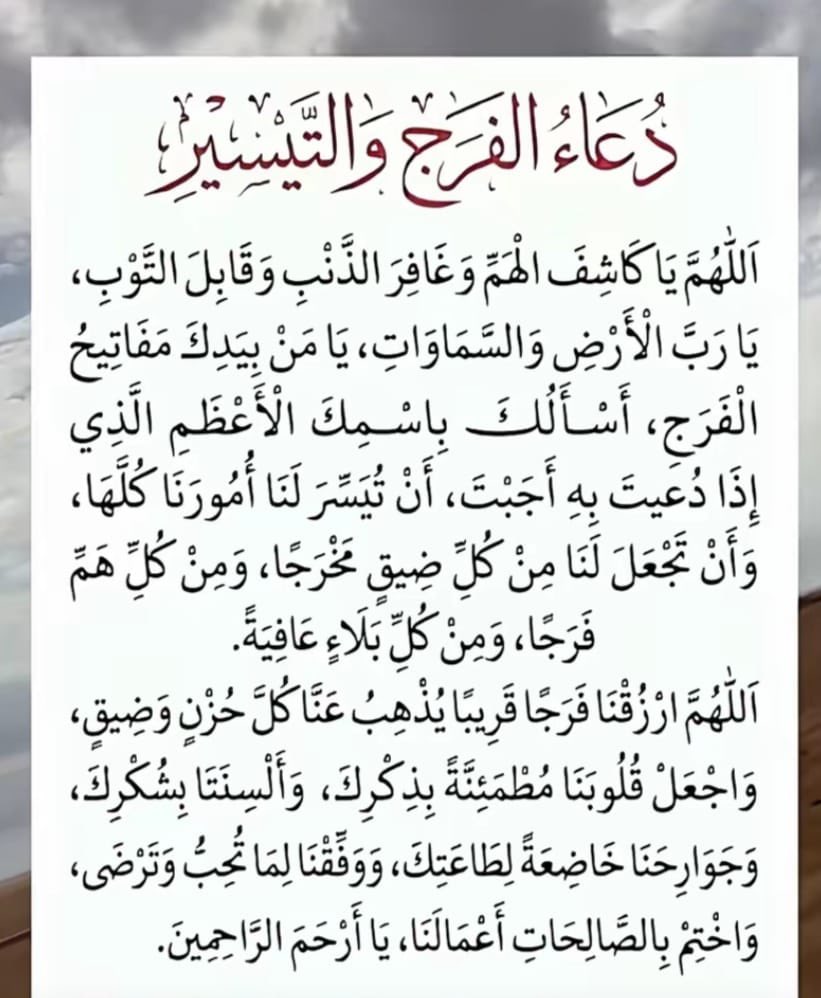 دُعَاءُ الفَرَجِ وَالتَّيْسِيْرِ
اَللّٰهُمَّ يَا كَاشِفَ الْهَمِّ وَغَافِرَ الذَّنْبِ وَقَابِلَ التَّوْبِ،
يَا رَبَّ الْأَرْضِ وَالسَّمَاوَاتِ، يَا مَنْ بِيَدِكَ مَفَاتِيحُ
الْفَرَجِ، أَسْأَلُكَ بِاسْمِكَ الْأَعْظَمِ الَّذِي
إِذَا دُعَيتَ بِهِ أَجَبْتَ، أَنْ تُيَسِّرَ لَنَا أُمُورَنَا كُلَّهَا،
وَأَنْ تَجْعَلَ لَنَا مِنْ كُلِّ ضِيقٍ مَخْرَجًا، وَمِنْ كُلِّ هَمٍّ
فَرَجًا، وَمِنْ كُلِّ بَلَاءٍ عَافِيَةً.
اَللّٰهُمَّ ارْزُقْنَا فَرَجًا قَرِيبًا يُذْهِبُ عَنَّا كُلَّ حُزْنٍ وَضِيقٍ،
وَاجْعَلْ قُلُوبَنَا مُطْمَئِنَّةً بِذِكْرِكَ، وَأَلْسِنَتَا بِشُكْرِكَ،
وَجَوَارِحَنَا خَاضِعَةً لِطَاعَتِكَ، وَوَفِّقْنَا لِمَا تُحِبُّ وَتَرْضَى،
وَاخْتِمْ بِالصَّالِحَاتِ أَعْمَالَنَا، يَا أَرْحَمَ الرَّاحِمِينَ.